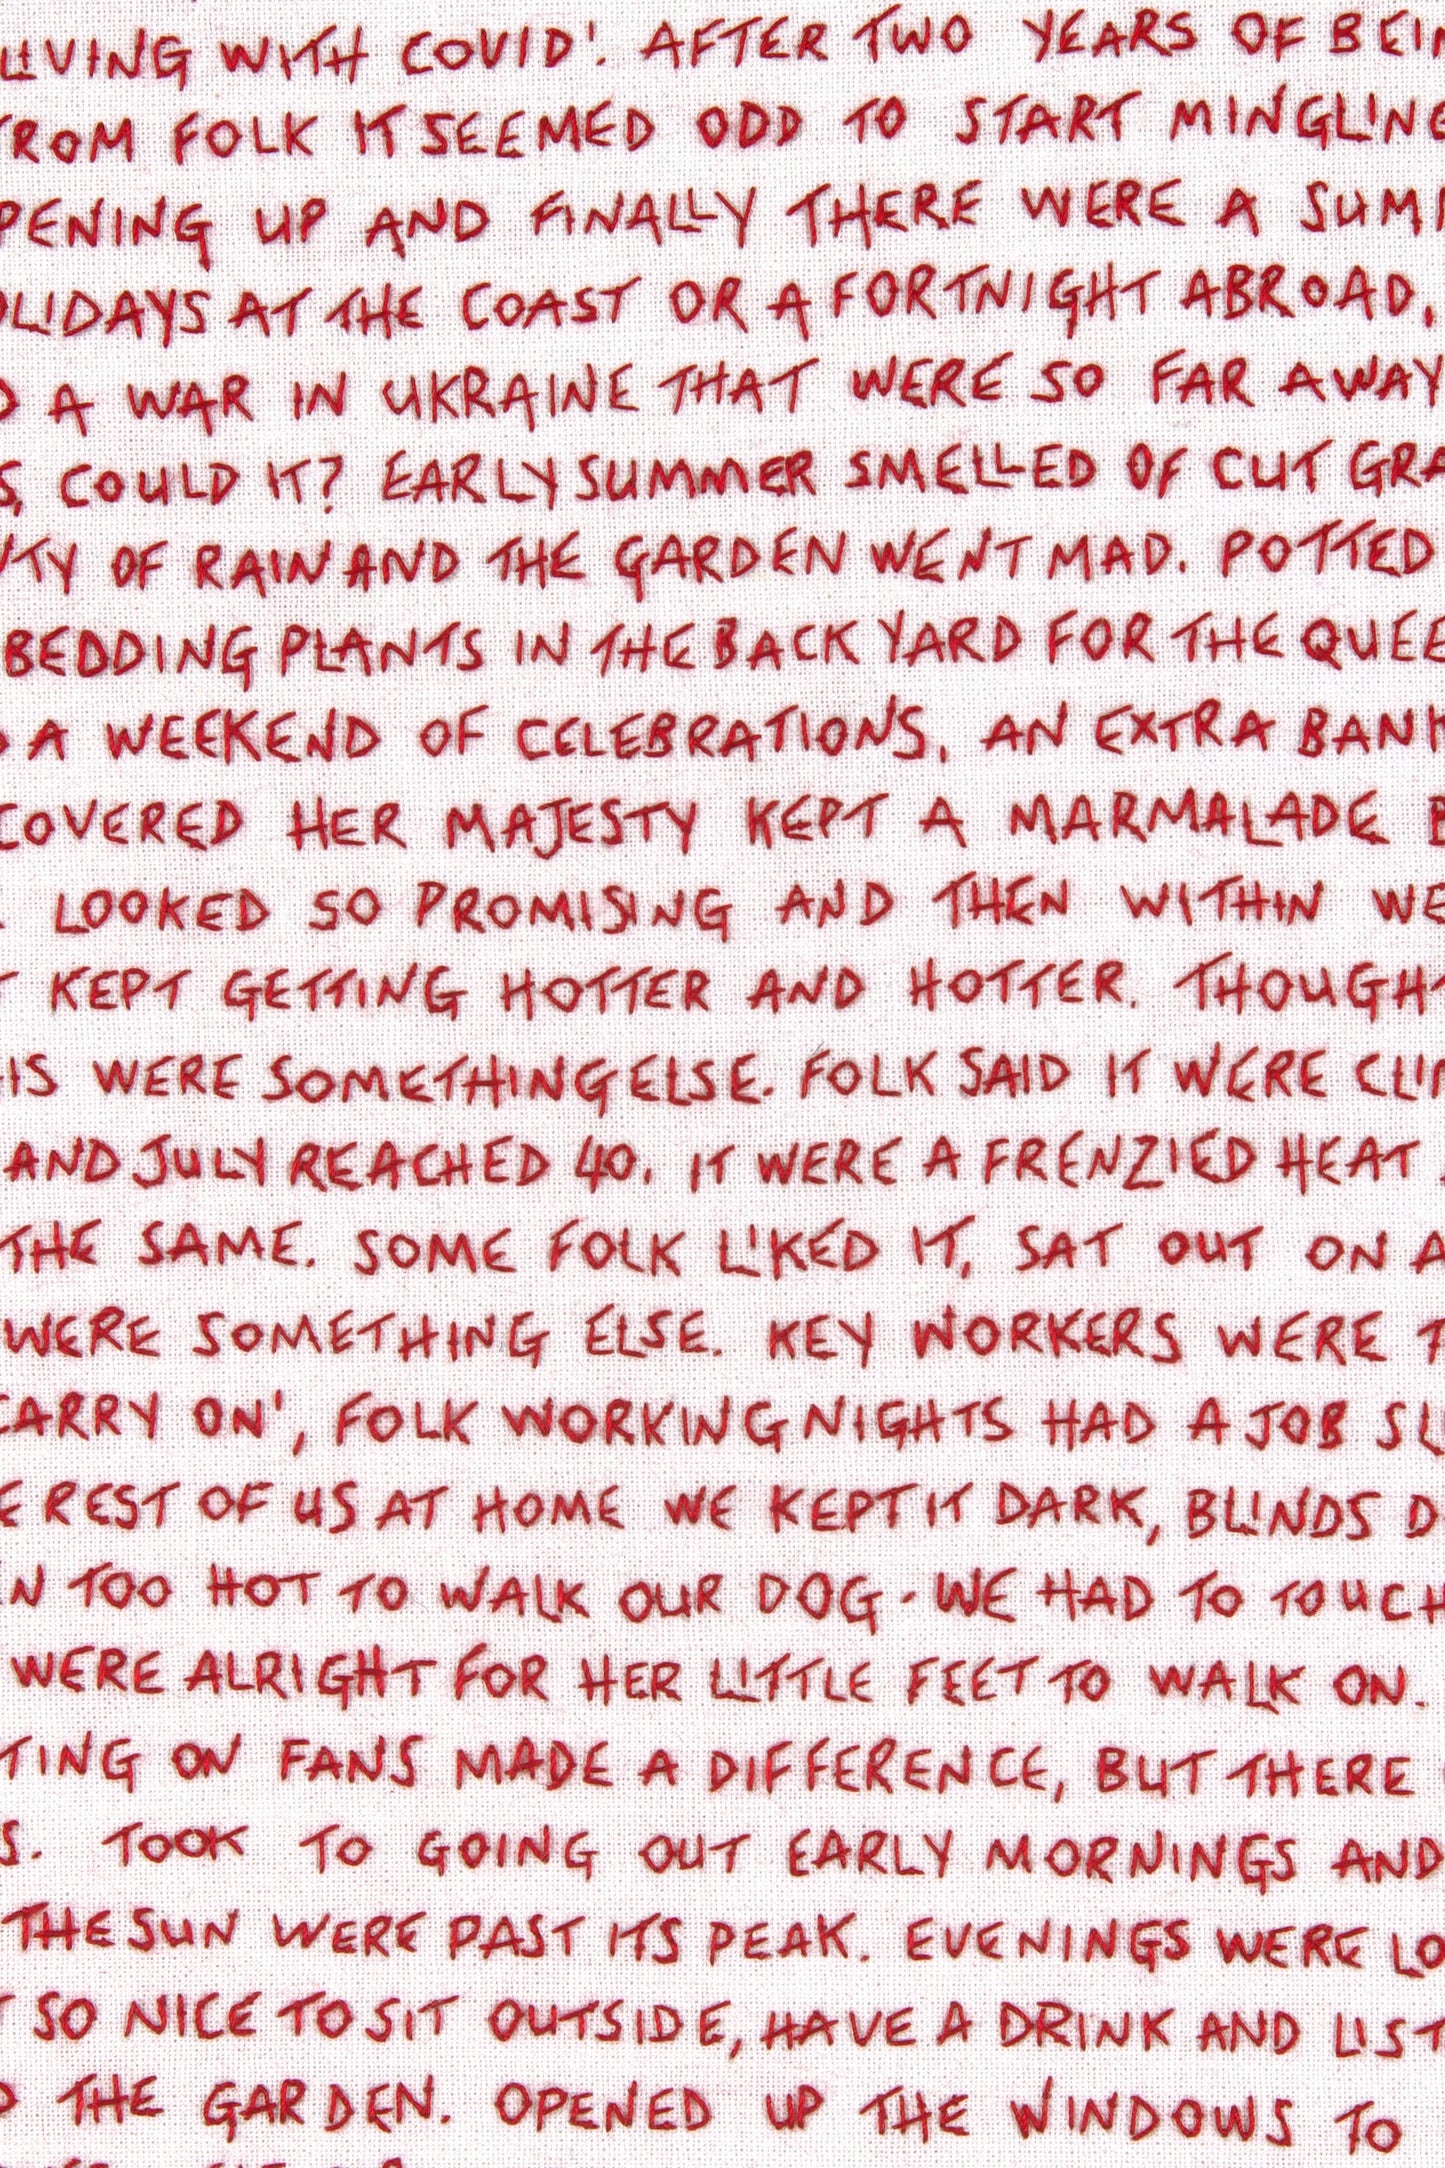 LIVING WITH COVID'. AFTER TWO YEARS OF
FROM FOLK IT SEEMED ODD TO START MINGLING
PENING UP AND FINALLY THERE WERE A
OLIDAYS AT THE COAST OR A FORTNIGHT ABROAD,
A WAR IN UKRAINE THAT WERE SO FAR AWAY
COULD IT? EARLY SUMMER SMELLED OF CUT GRA
TY OF RAIN AND THE GARDEN WENT MAD. POTTED
BEDDING PLANTS IN THE BACK YARD FOR THE QUEE
A WEEKEND OF CELEBRATIONS, AN EXTRA BANK
COVERED HER MAJESTY KEPT A MARMALADE
LOOKED SO PROMISING AND THEN WITHIN WE
KEPT GETTING HOTTER AND HOTTER. THOUGHT
HIS WERE SOMETHING ELSE. FOLK SAID IT WERE CLI
AND JULY REACHED 40. IT WERE A FRENZIED HEAT
THE SAME. SOME FOLK LIKED IT, SAT OUT ON A
WERE SOMETHING ELSE. KEY WORKERS WERE T
CARRY ON', FOLK WORKING NIGHTS HAD A JOB SL
E REST OF US AT HOME WE KEPT IT DARK, BLINDS D
N TOO HOT TO WALK OUR DOG - WE HAD TO TOUCH
WERE ALRIGHT FOR HER LITTLE FEET TO WALK ON.
TING ON FANS MADE A DIFFERENCE, BUT THERE
S. TOOK TO GOING OUT EARLY MORNINGS AND
THE SUN WERE PAST ITS PEAK. EVENINGS WERE LO
T SO NICE TO SIT OUTSIDE, HAVE A DRINK AND LIST
THE GARDEN. OPENED UP THE WINDOWS TO